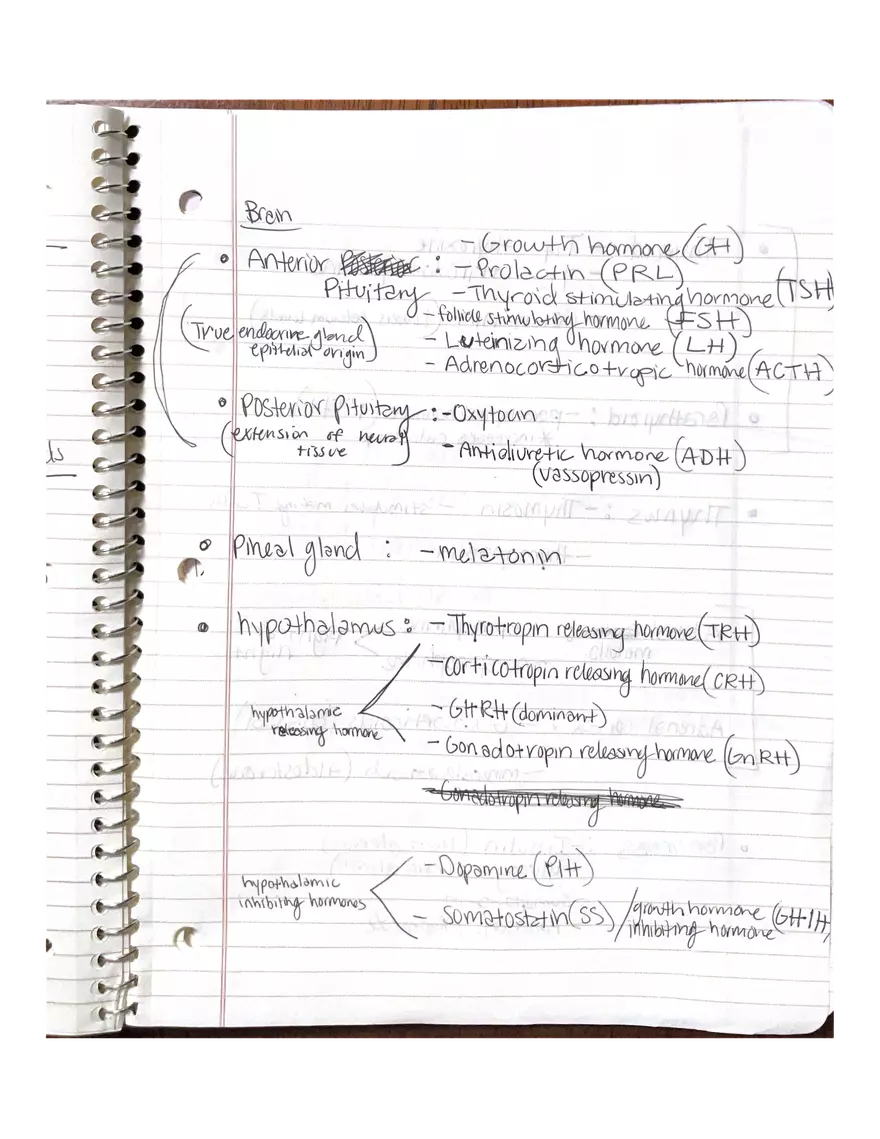 Brain
• Anterior Posterior : - Growth hormone (GH)
Pituitary - Prolactin - (PRL)
- Thyroid stimulating hormone (TSH)
- follicle stimulating hormone (FSH)
(True endocrine gland - Luteinizing hormone (LH)
epithelial origin) - Adrenocorticotropic hormone (ACTH)
• Posterior Pituitary : - Oxytocin
(extension of neural
tissue) - Antidiuretic hormone (ADH)
(vassopressin)
• Pineal gland : - melatonin
• hypothalamus : - Thyrotropin releasing hormone (TRH)
- corticotropin releasing hormone (CRH)
hypothalamic - GHRH (dominant)
releasing hormone
- Gonadotropin releasing hormone (GnRH)
- Gonadotropin releasing hormone
- Dopamine (PIH)
hypothalamic
inhibiting hormones
- Somatostatin (SS) / growth hormone (GHIH)
inhibiting hormone